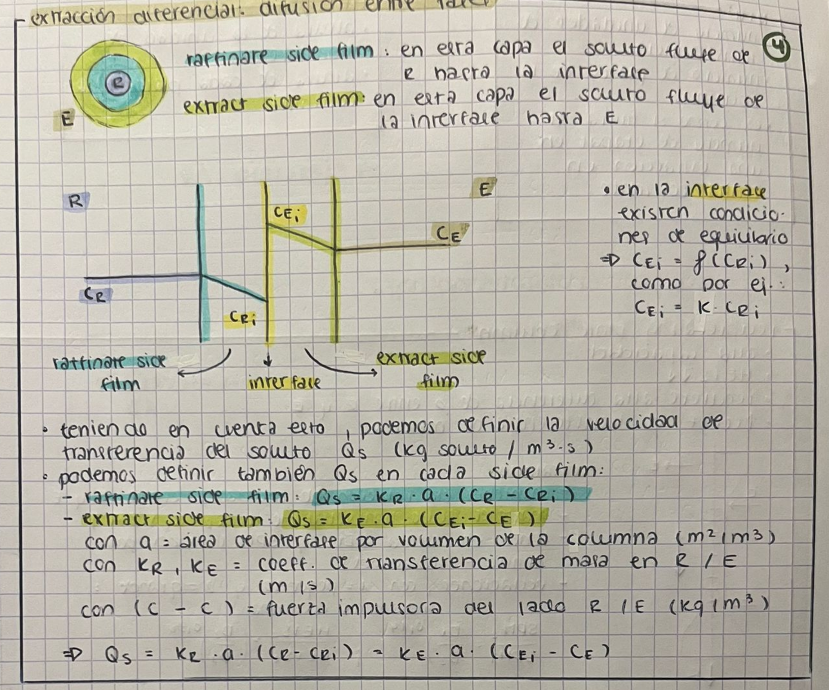 extracción diferencial: difusión entre fases
4
raffinate side film: en esta capa el soluto fluye de
R hasta la interface
extract side film: en esta capa el soluto fluye de
la interface hasta E
R
E
R
CEi
E
CE
CR
CRi
• en la interface
existen condicio-
nes de equilibrio
⇒ CEi = f(CRi),
como por ej.:
CEi = K · CRi
raffinate side
film
interface
extract side
film
• teniendo en cuenta esto, podemos definir la velocidad de
transferencia del soluto Qs (kg soluto / m³·s)
• podemos definir también Qs en cada side film:
- raffinate side film: Qs = KR · a · (CR - CRi)
- extract side film: Qs = KE · a · (CEi - CE)
con a = área de interfase por volumen de la columna (m²/m³)
con KR, KE = coeff. de transferencia de masa en R / E
(m/s)
con (C - C) = fuerza impulsora del lado R / E (kg/m³)
⇒ Qs = KR · a · (CR - CRi) = KE · a · (CEi - CE)